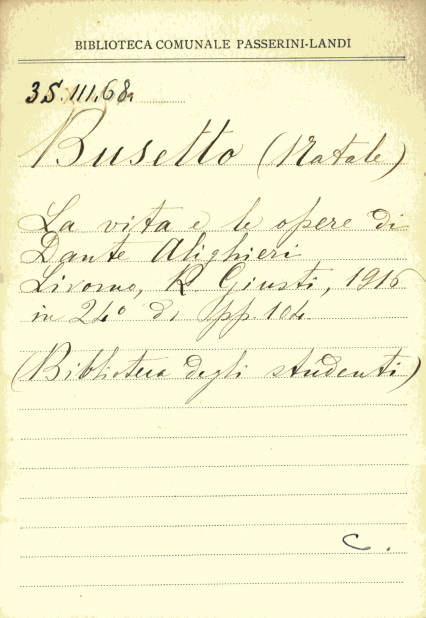 BIBLIOTECA COMUNALE PASSERINI-LANDI
3S.III.68.
Busetto (Natale)
La vita e le opere di
Dante Alighieri
Livorno, R. Giusti, 1916
in 24° di pp. 104.
(Biblioteca degli studenti)
C.